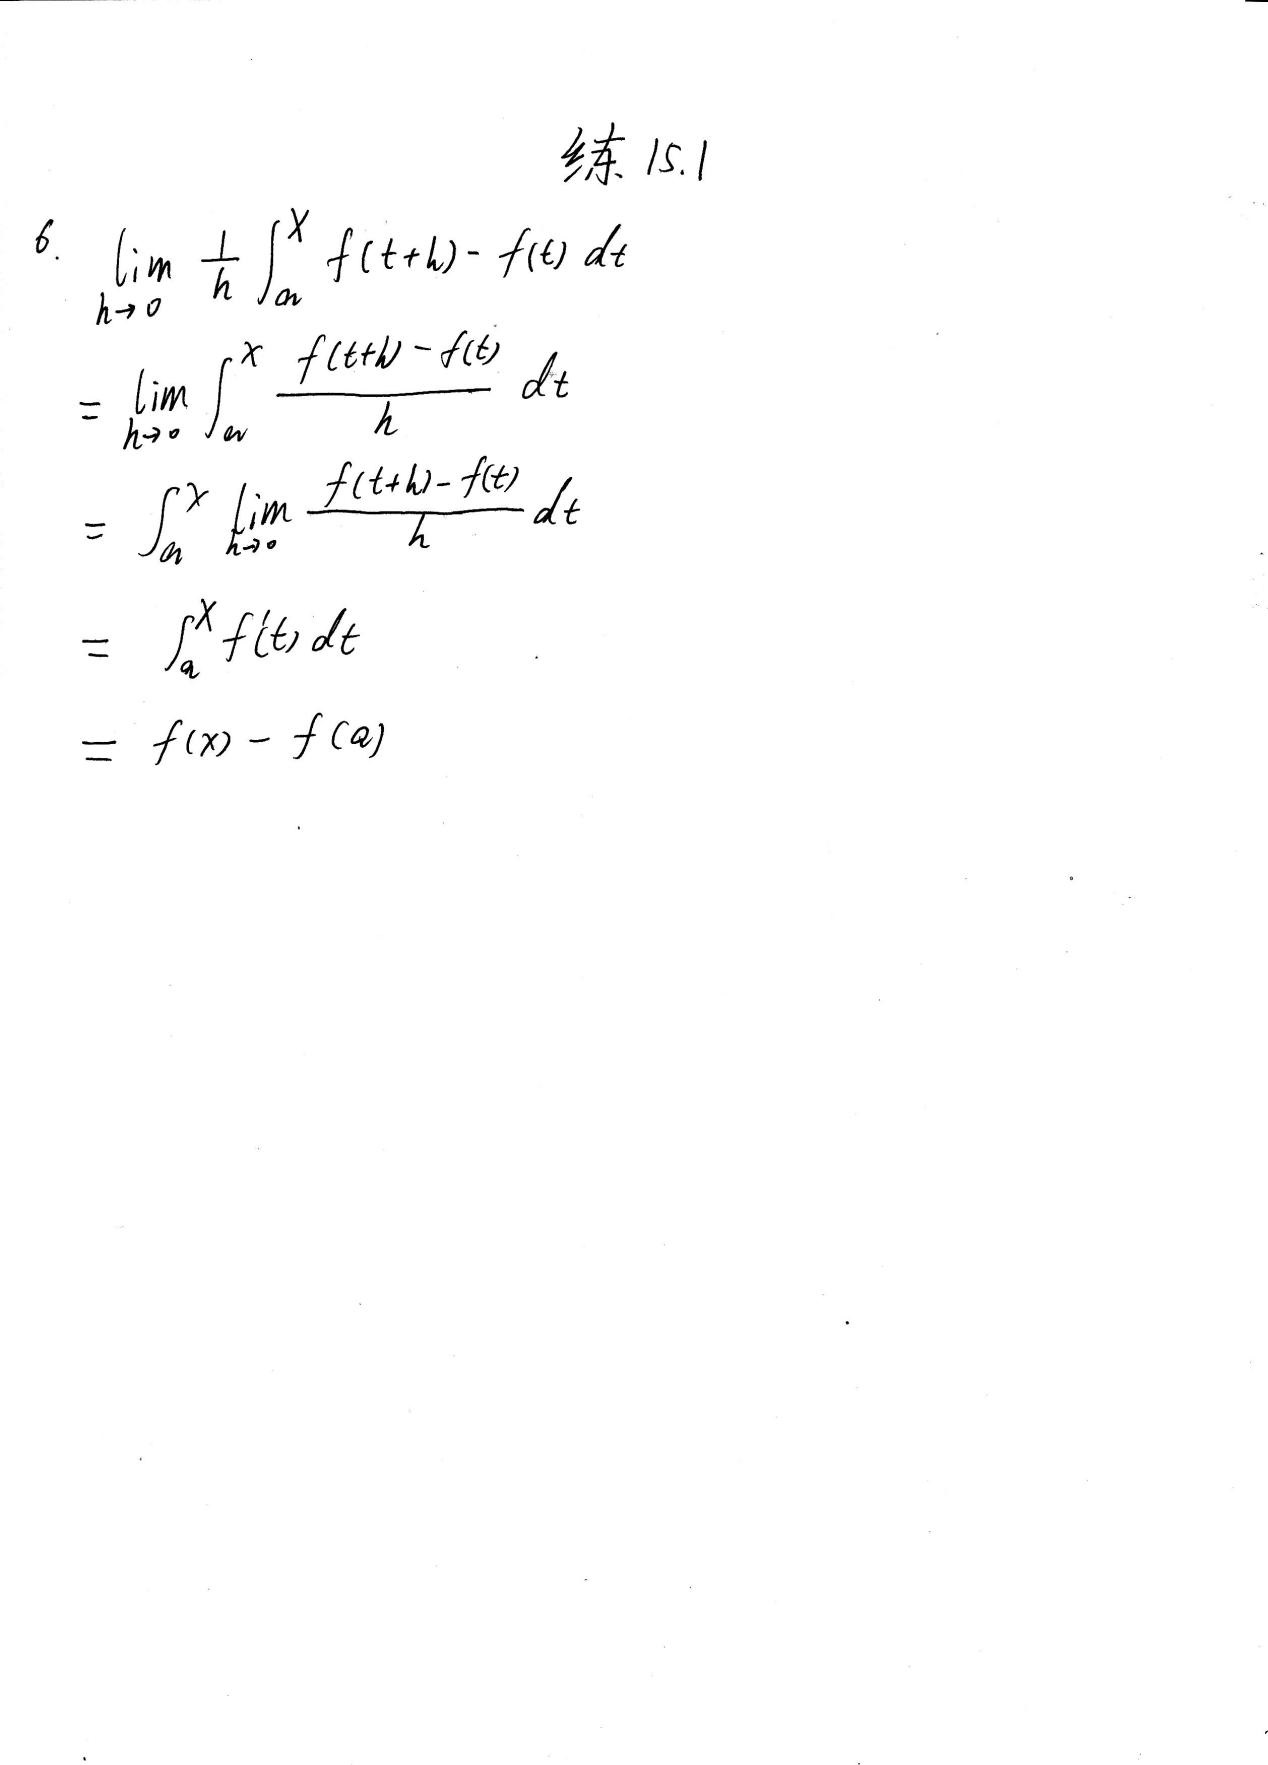 练 15.1
6. lim h→0 1/h ∫_a^x f(t+h) - f(t) dt
= lim h→0 ∫_a^x (f(t+h) - f(t))/h dt
= ∫_a^x lim h→0 (f(t+h) - f(t))/h dt
= ∫_a^x f'(t) dt
= f(x) - f(a)